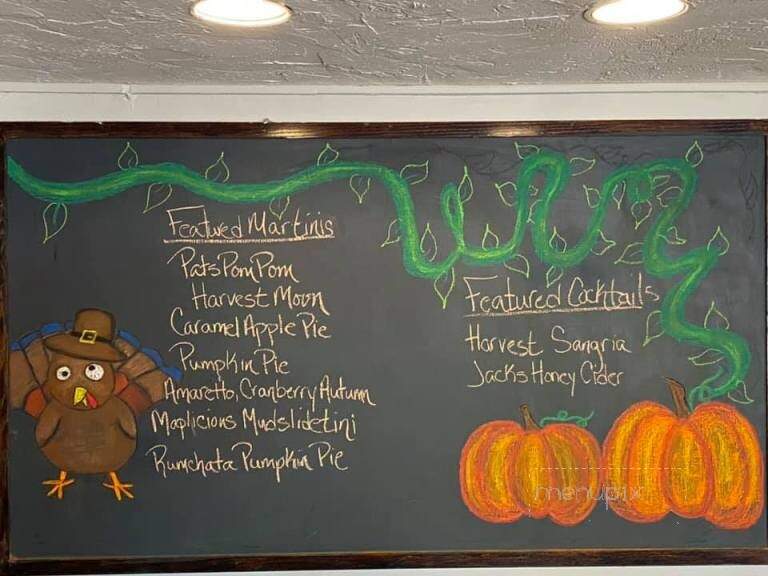 Featured Martinis
Pats Pom Pom
Harvest Moon
Caramel Apple Pie
Pumpkin Pie
Amaretto, Cranberry Autumn
Maplicious Mudslidetini
Rumchata Pumpkin Pie
Featured Cocktails
Harvest Sangria
Jacks Honey Cider
menupix